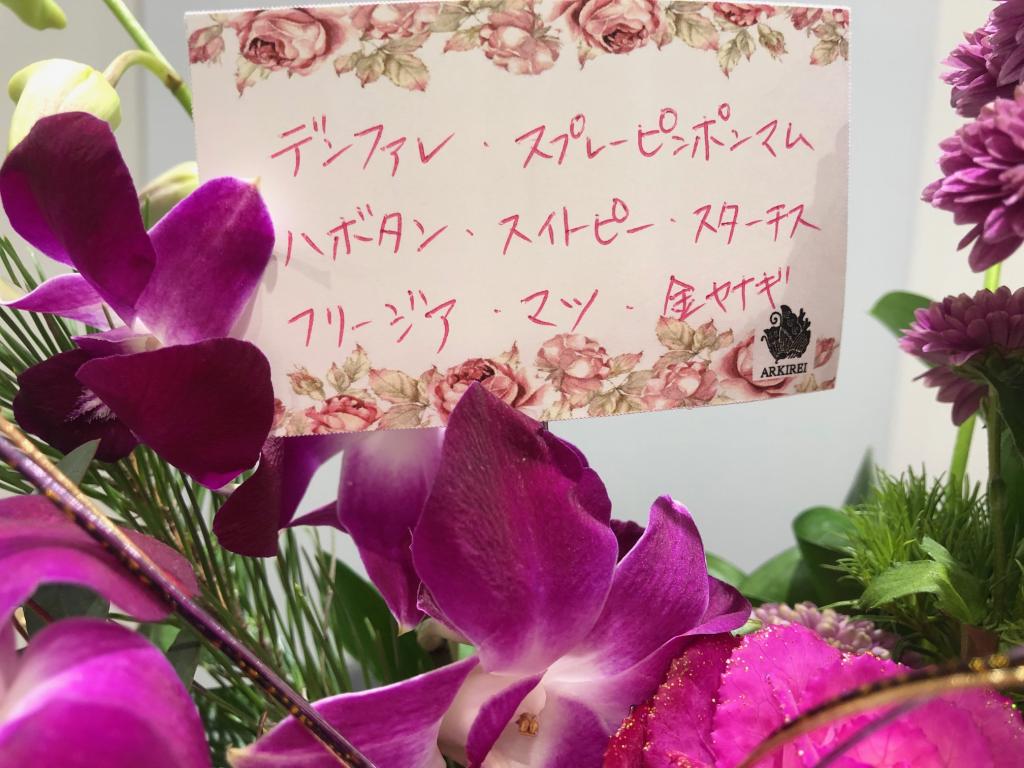 デンファレ・スプレーピンポンマム
ハボタン・スイトピー・スターチス
フリージア・マツ・金ヤナギ
ARKIREI